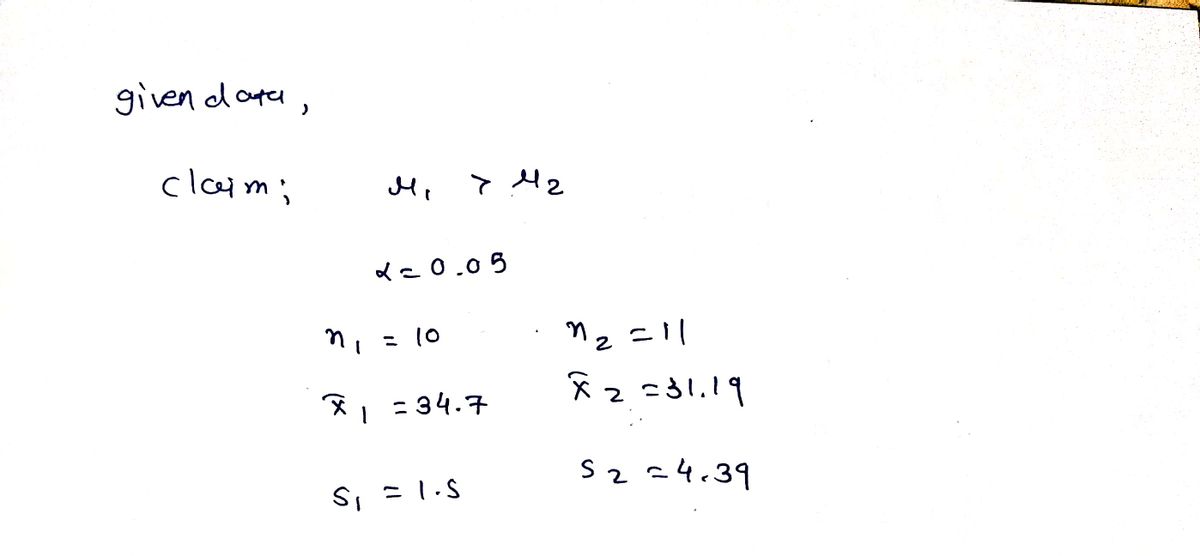 given data,
claim; μ₁ > μ₂
α = 0.05
n₁ = 10 n₂ = 11
x̄₁ = 34.7 x̄₂ = 31.19
s₁ = 1.5 s₂ = 4.39